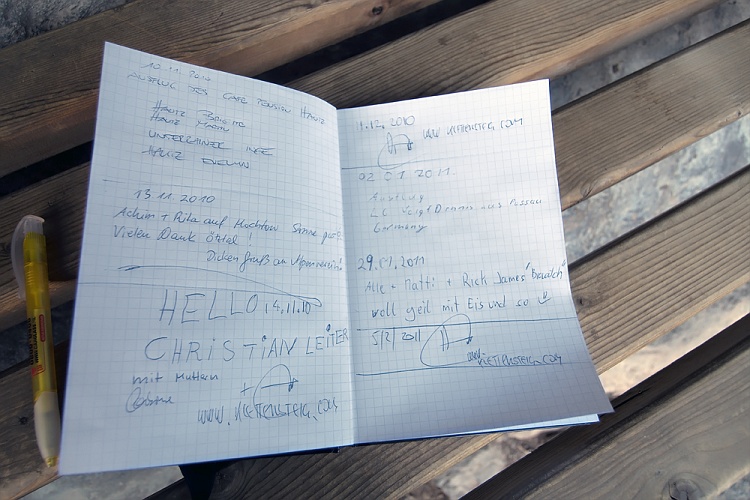 10.11.2010
AUSFLUG DES CAFE PENSION HAUTZ
HAUTZ BRIGITTE
HAUTZ MARTIN
HAUTZ EVELYN
13.11.2010
Achim + Rita auf Hochtour Sonne pur
Vielen Dank Ötztal !
Dicken Gruß an Alpenverein!
HELLO 14.11.10
CHRiSTiAN LEiTER
mit Muttern
+
WWW.KLETTENSTEIG.COM
1.12.2010
WWW.KLETTENSTEIG.COM
02.01.2011
Ausflug
aus Passau
Germany
29.01.2011
Alle + Matti + Rick James
voll geil mit Eis und so
5/2/2011
www.KLETTENSTEIG.COM